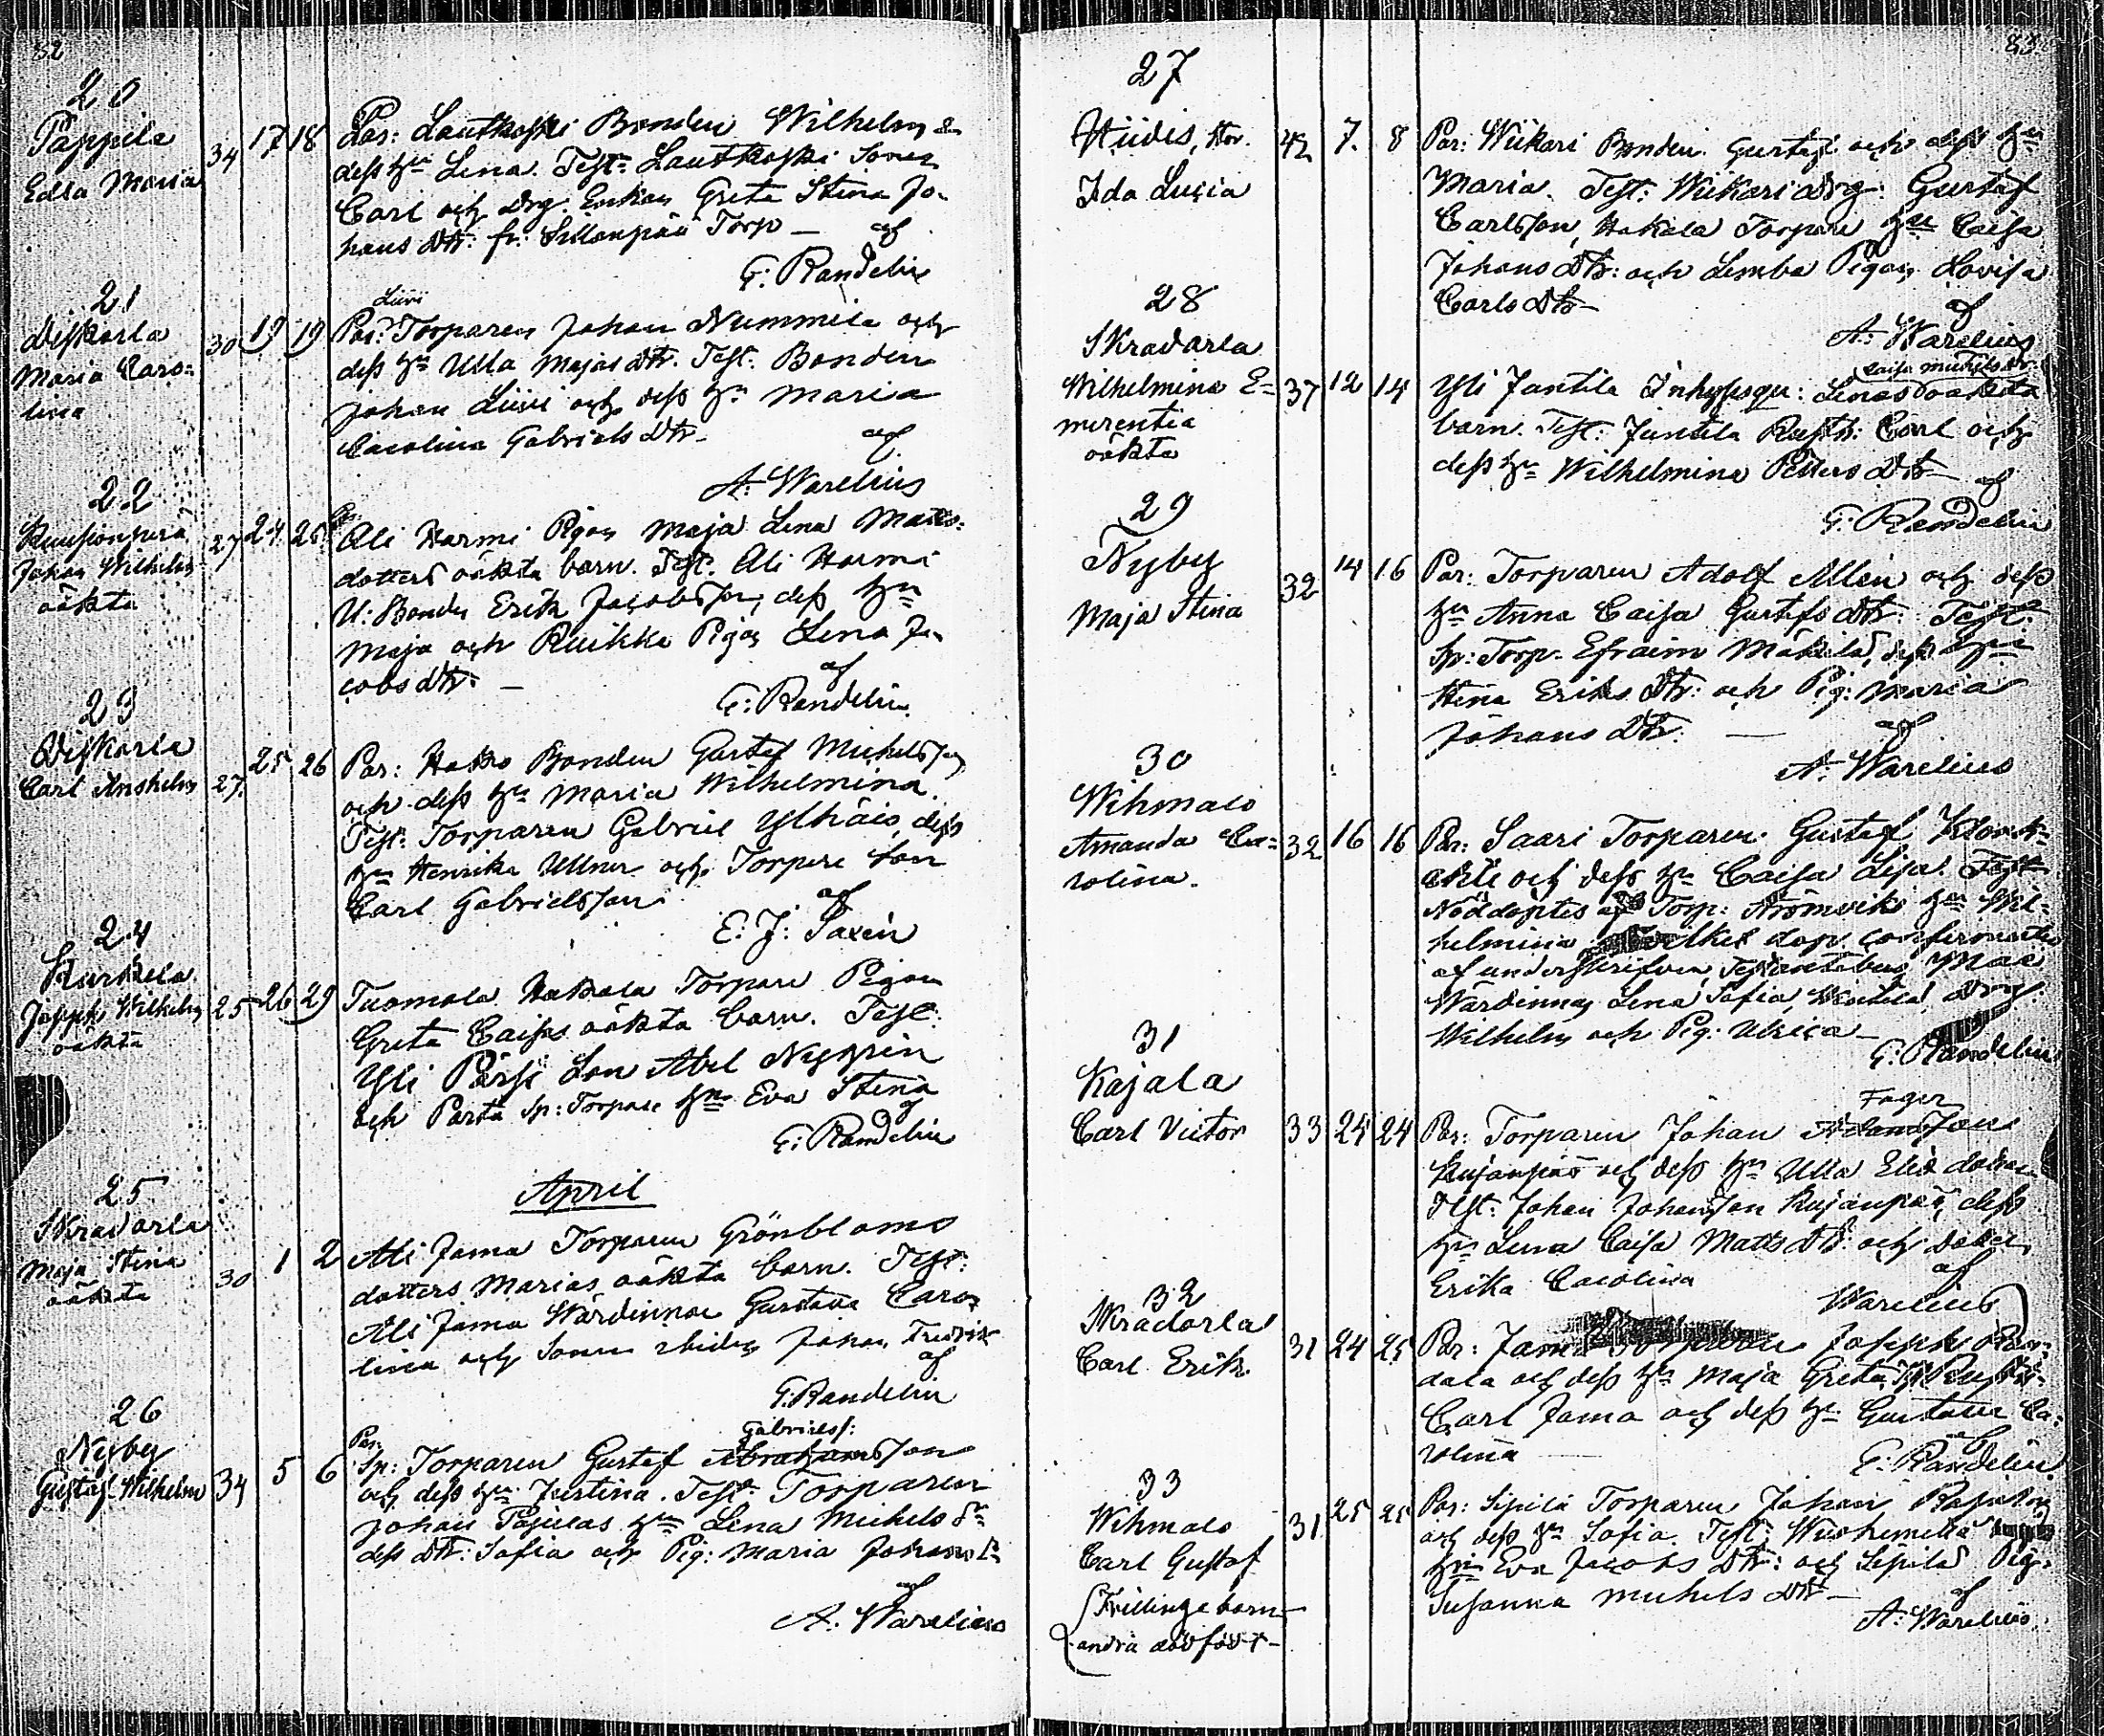 82
20
Pappila
Edla Maria
34 17 18
Par: Lautkoski Bonden Wilhelm &
dess hu Lena. Test: Lautkoski Sonen
Carl och Drg. Enkan Greta Stina Jo-
hans Dtr: fr: Sillanpää Torp — af
G: Randelin
21
Diskarla
Maria Caro=
lina
30 19 19
Liuvi
Par: Torparen Johan Nummila och
dess hu Ulla Majas Dtr. Test: Bonden
Johan Liuvi och dess hu Maria
Carolina Gabriels Dtr— af
A: Warelius
22
Johan Wilhelm
oäkta
27 24 25
Par:
Ali Harmi Pigan Maja Lena Matts=
dotters oäkta barn. Test: Ali Harmi
U: Bonden Erik Jacobsson, dess hu
Maja och Kuikka Pigan Lena Ja-
cobs dtr. — af
G: Randelin
23
Diskarla
Carl Anshelm
27. 25 26
Par: Hakko Bonden Gustaf Michelsson
och dess hu Maria Wilhelmina.
Test: Torparen Gabriel Ylhäis, dess
hu Henrika Ullner och Torpare Son
Carl Gabrielsson
af
E. J: Saxén
24
Kurkela
Joseph Wilhelm
oäkta
25 26 29
Tuomola Hakala Torpare Pigan
Greta Caisas oäkta barn. Test:
Yli Pärssi Son Abel Nygrén
och Parta Sp: Torpare hu Eva Stina
af
G: Randelin
April
25
Skradarla
Maja Stina
oäkta
30 1 2
Ali Jama Torparen Grönbloms
dotters Marias oäkta barn. Test:
Ali Jama Wärdinnan Gustava Caro=
lina och Sonen Johan Fredrik
af
G. Randelin
26
Nyby
Gustaf Wilhelm
34 5 6
Gabrielss:
Par.
Sp: Torparen Gustaf Abrahamsson
och dess hu Justina. Test: Torparen
Johan Pajulas hu Lena Michels Dr
dess Dtr: Sofia och Pig: Maria Johans Dr
af
A: Warelius
83
27
Hiidis, Stor.
Ida Lucia
42 7. 8
Par: Wiikari Bonden Gustaf och dess hu
Maria. Test: Wiikari Drg: Gustaf
Carlsson, Hakala Torpare hu Caisa
Johans Dtr: och Lemba Pigan Lovisa
Carls Dtr—
af
A: Warelius
28
Skradarla
Wilhelmina E=
merentia
oäkta
37 12 14
Caisa Michels Dr
Yli Jantila Inhysesqu: Lenas oäkta
barn. Test: Juntila Rusth: Carl och
dess hu Wilhelmina Petters Dtr— af
G: Randelin
29
Nyby
Maja Stina
32 14 16
Par: Torparen Adolf Allén och dess
hu Anna Caisa Gustafs Dtr: Test:
Sp: Torp. Efraim Mäkilä, dess hu
Stina Eriks Dtr: och Pig: Maria
Johans Dtr: —
af
A: Warelius
30
Wihmalo
Amanda Ca=
rolina.
32 16 16
Par: Saari Torparen Gustaf
och dess hu Caisa Lisa. Test
Nöddöptes af Torp: Strömviks hu Wil=
helmina hvilket dop confirmerades
af undersskrifven, Testantibus Mae
Wärdinnan Lena Sofia, Drg:
Wilhelm och Pig: Ulrica—
G: Randelin
31
Kajala
Carl Victor
33 24 24
Fager
Par: Torparen Johan Adamsson
Kujanpää och dess hu Ulla Elis
Test: Johan Johansson Kujanpää, dess
hu Lena Caisa Matts Dtr och
Erika Carolina
af
Warelius
32
Skradarla
Carl Erik
31 24 25
Par: Jama Torparen Joseph Ran=
dala och dess hu Maja Greta. T: Rusth:
Carl Jama och dess hu Gustava Ca=
rolina
af
G: Randelin
33
Wihmalo
Carl Gustaf
Tvillingebarn
andra dödfödt—
31 25 25
Par: Sipilä Torparen Johan
och dess hu Sofia. Test:
hu Eva Jacobs Dtr: och Sipilä Pig:
Susanna Michels Dtr—
af
A: Warelius.